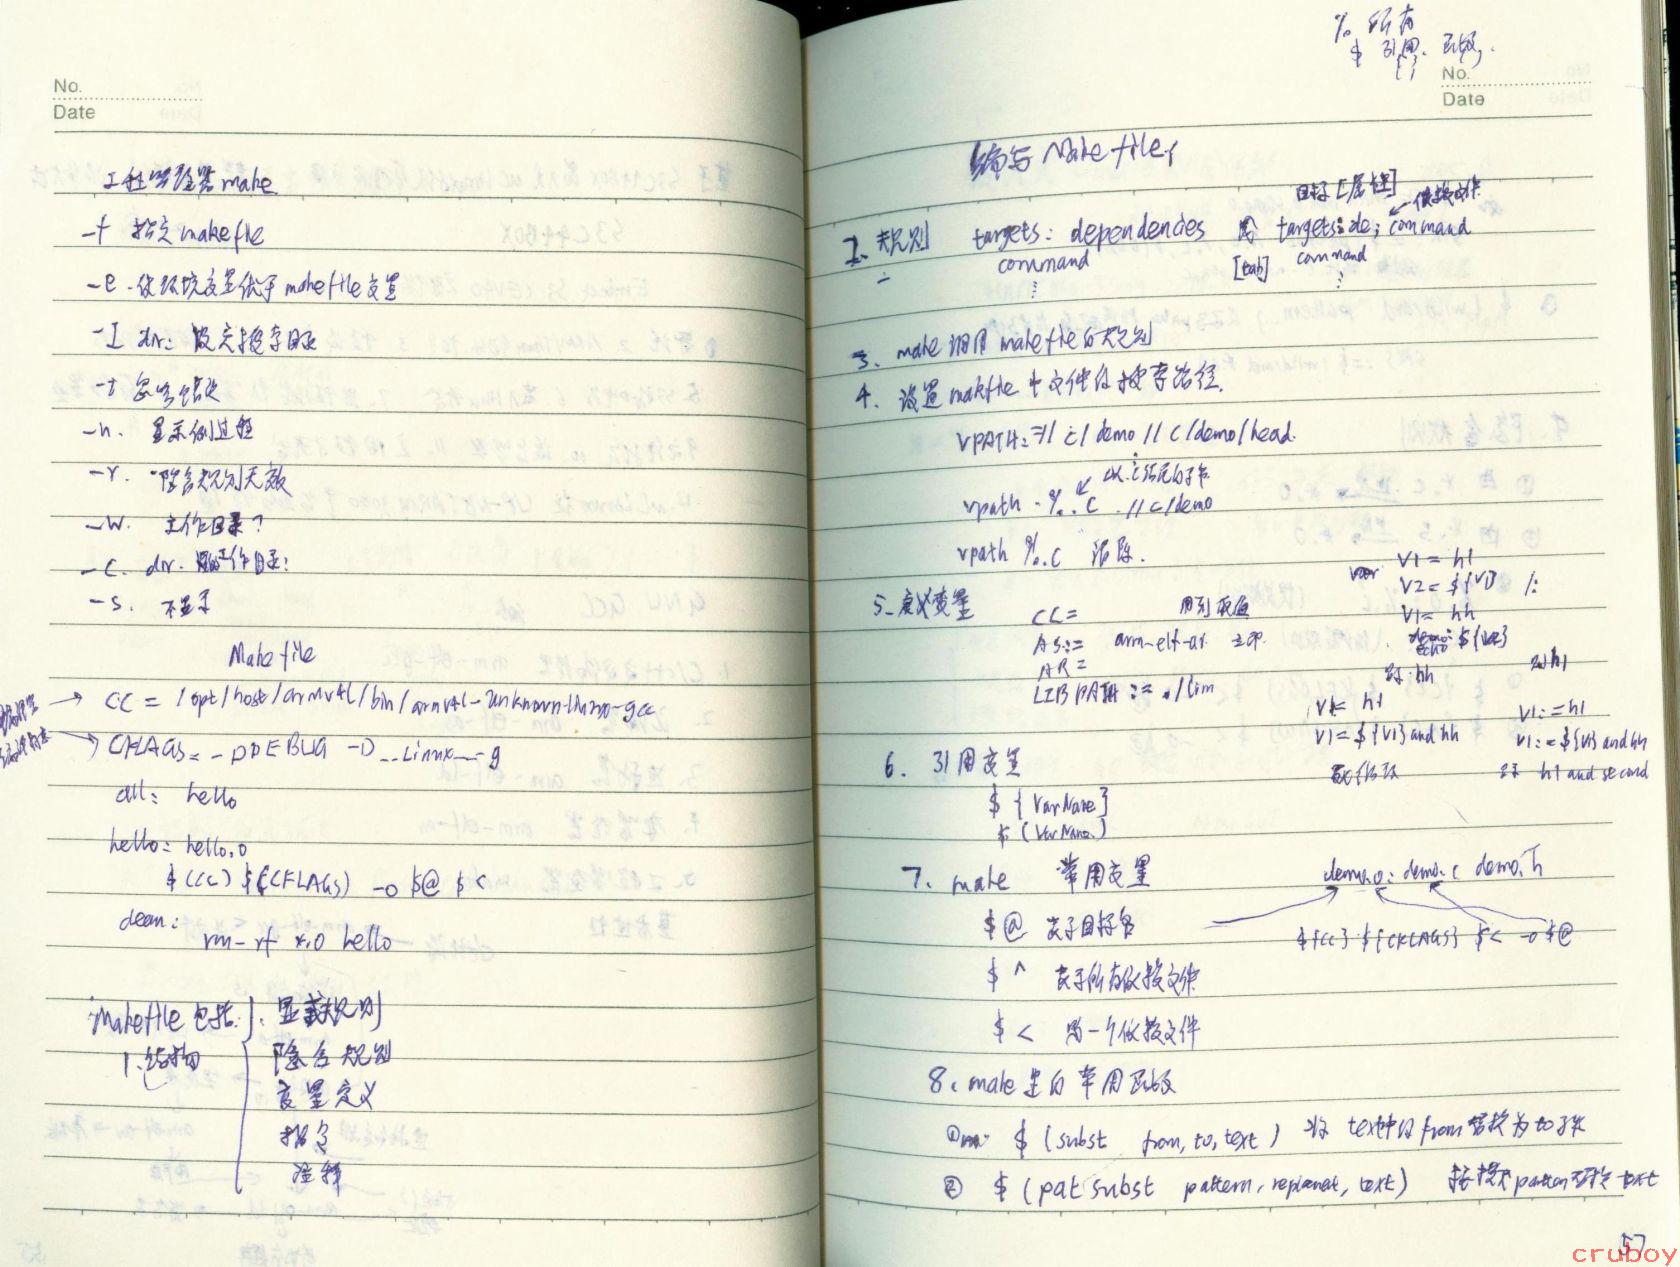 No.
Date
工程管理器 make
-f 指定makefile
-e. 使环境变量优于makefile变量
-I dir: 设定搜索目录
-i 忽略错误
-n. 显示例过程
-r. 隐含规则无效
-w. 工作目录?
-C. dir. 工作目录:
-s. 不显示
Makefile
CC = /opt/host/armv4l/bin/armv4l-unknown-linux-gcc
CFLAGS= -DDEBUG -D__Linux__-g
all: hello
hello: hello.o
$(CC) $(CFLAGS) -o $@ $<
clean:
rm -rf *.o hello
Makefile 包括:
1.结构
显式规则
隐含规则
变量定义
指令
注释
% 所有
$ 引用. 函数,
{ }
No.
Date
编写 Makefile
目标[属性]
依赖文件
2. 规则 targets: dependencies 或 targets:de; command
command [tab] command
3. make 调用 makefile的规则
4. 设置makefile中文件的搜索路径.
VPATH:=// c/demo // c/demo/head.
以.c结尾的文件
vpath %.c .//c/demo
vpath %.c 清除.
5. 定义变量
CC= 用到取值
AS:= arm-elf-ar 立即
AR=
LIBPATH:= ./lim
var V1= h1
V2= ${V1}
V1= hh
echo ${V2}
V1= h1
V1= ${V1} and hh
V1:=h1
V1:=${V1} and hh
对 h1 and second
6. 引用变量
${VarName}
$(VarName)
7. make 常用变量
demo.o: demo.c demo.h
$@ 表示目标名
${CC} ${CFLAGS} $< -o $@
$^ 表示所有依赖文件
$< 第一个依赖文件
8. make 里的常用函数
① $(subst from,to,text) 将text中的from替换为to字
② $(patsubst pattern, replament, text) 按模式pattern替换text
57
cruboy